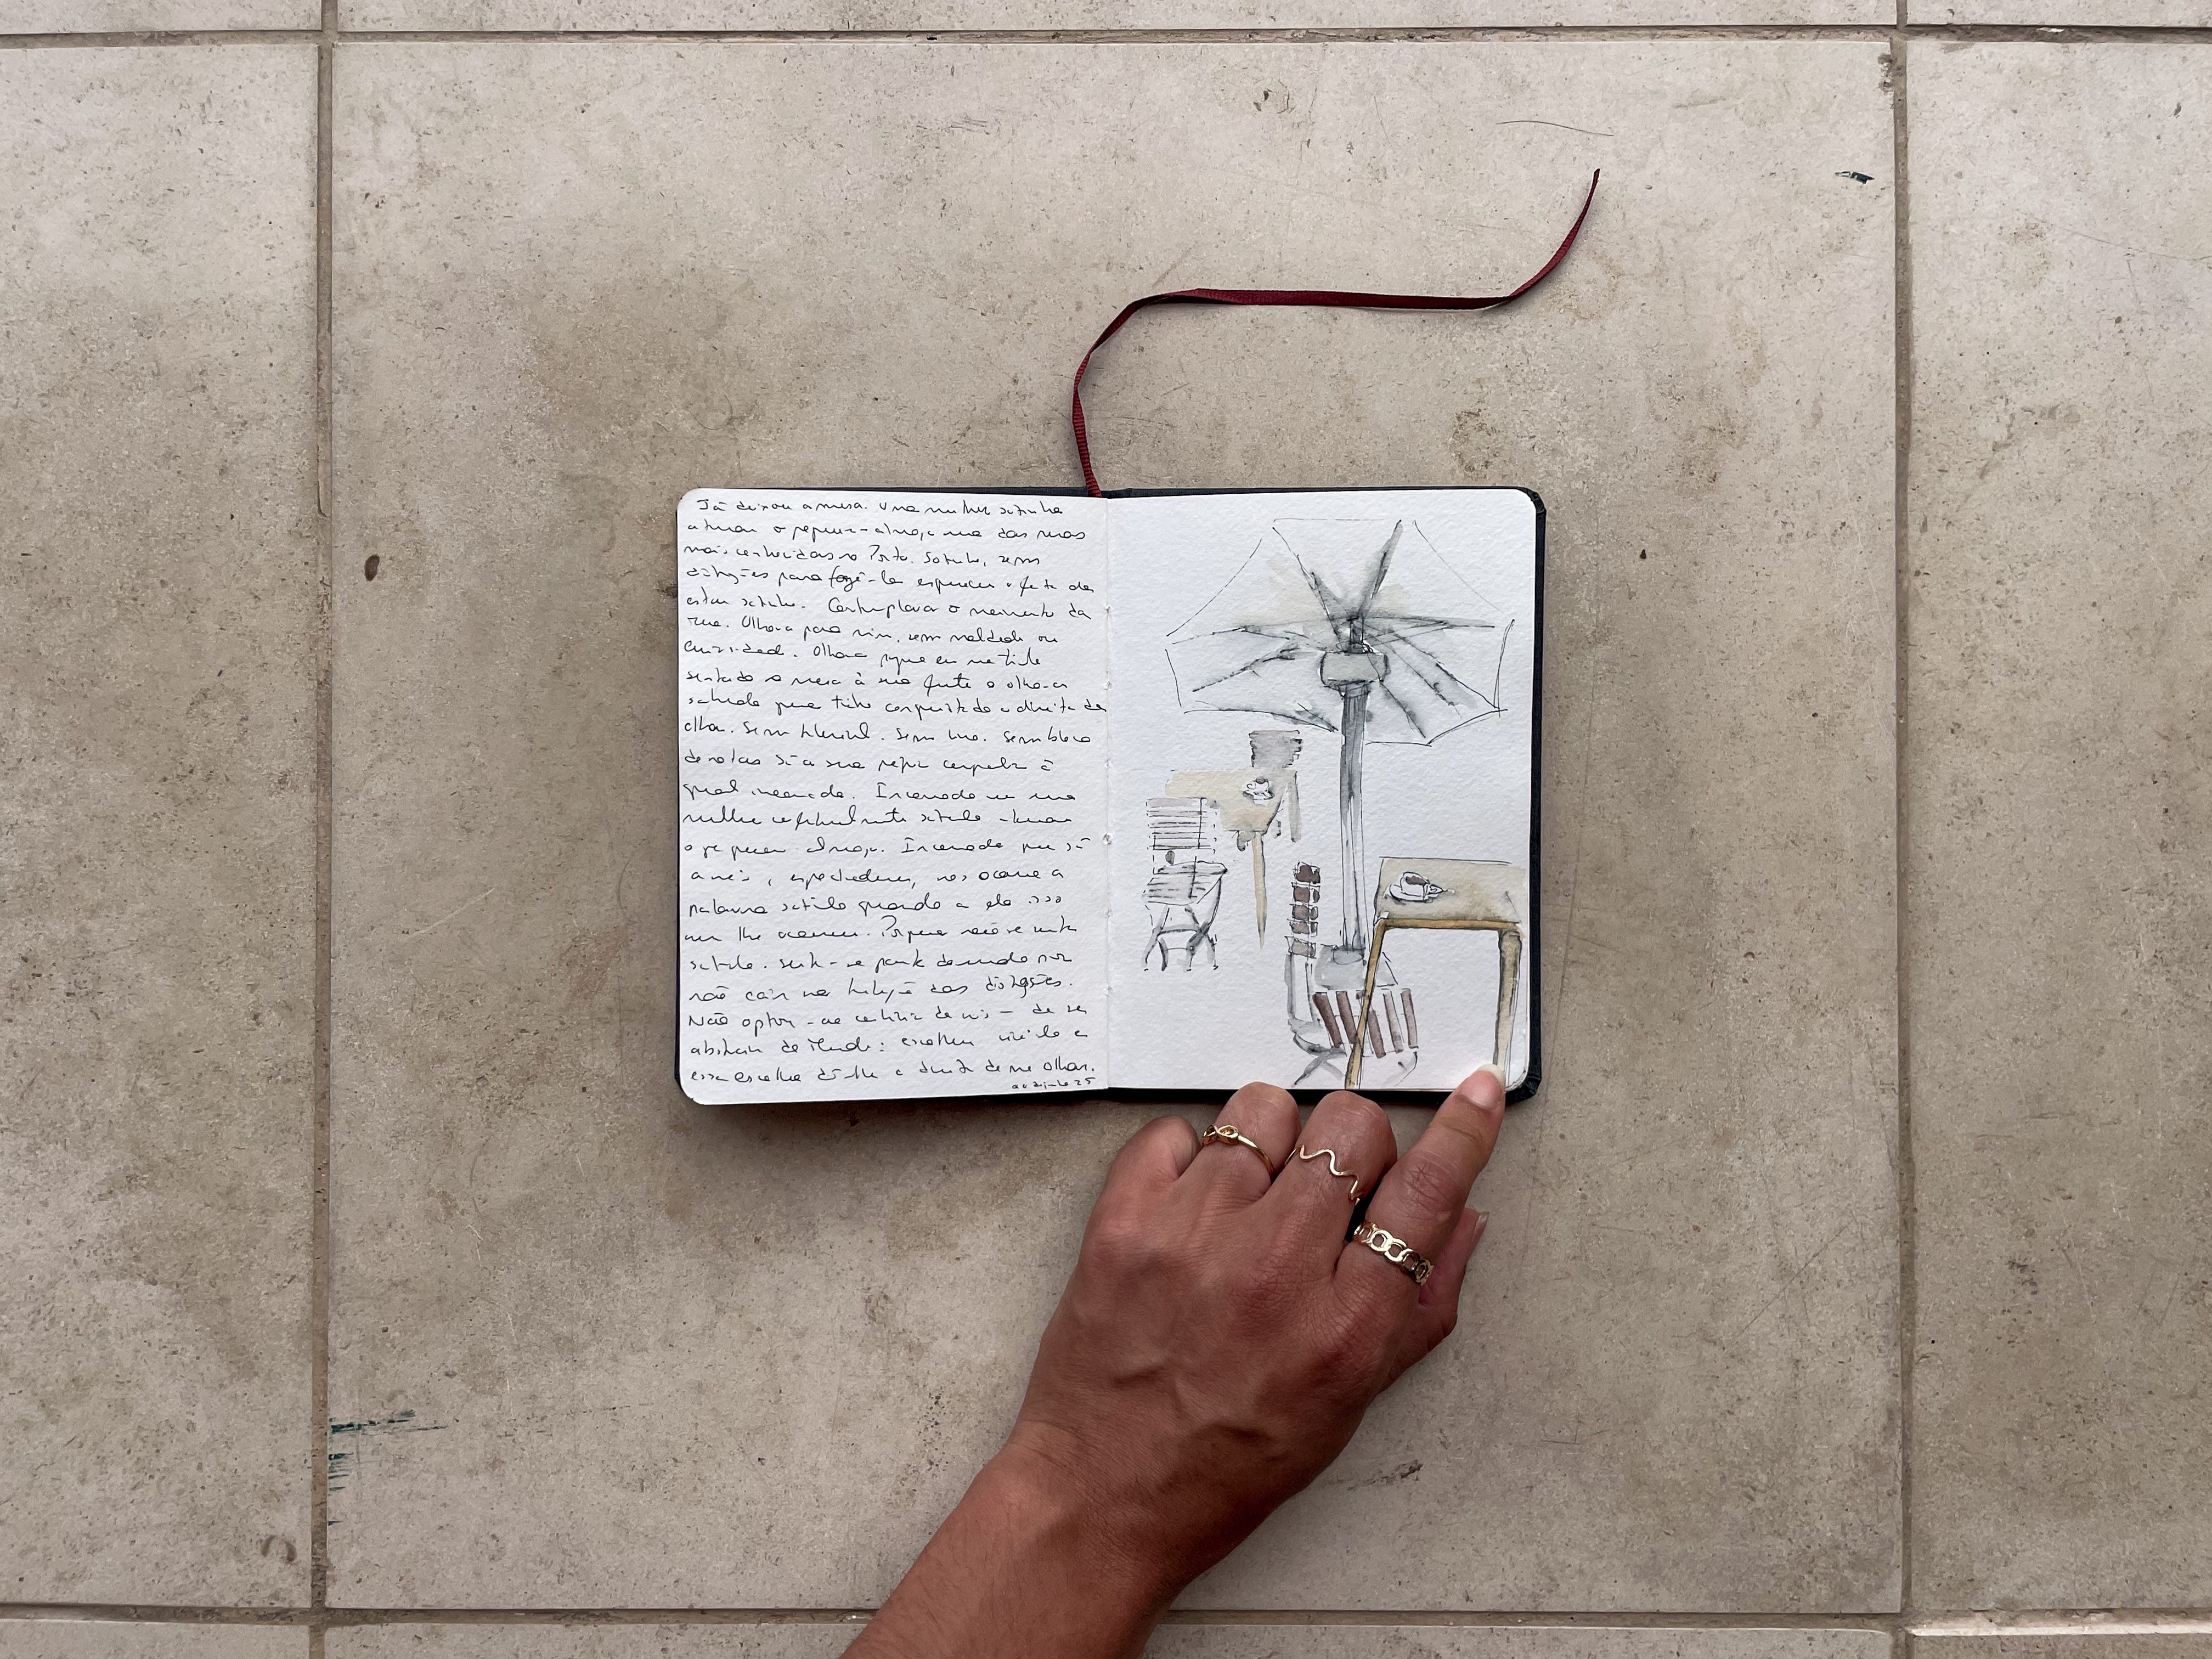 Já deixou a mesa. Uma mulher sozinha
a tomar o pequeno-almoço numa das ruas
mais conhecidas no Porto. Sozinha, sem
distrações para fazê-la esquecer o facto de
estar sozinha. Contemplava o movimento da
rua. Olhava para mim, sem maldade ou
curiosidade. Olhava porque eu me tinha
sentado na mesa à sua frente e olhava
sabendo que tinha conquistado o direito de
olhar. Sem telemóvel. Sem livro. Sem bloco
de notas. Só a sua própria companhia à
qual
mulher confortavelmente sozinha a tomar
o pequeno almoço. Incomoda que só
a nós, espectadores, nos ocorre a
palavra sozinha quando a ela isso
nem lhe ocorreu. Porque não se sente
sozinha. Sente-se parte do mundo por
não cair na tentação das distrações.
Não optou - ao contrário de nós - de se
abstrair do mundo: escolheu vivê-lo e
essa escolha dá-lhe o direito de me olhar.